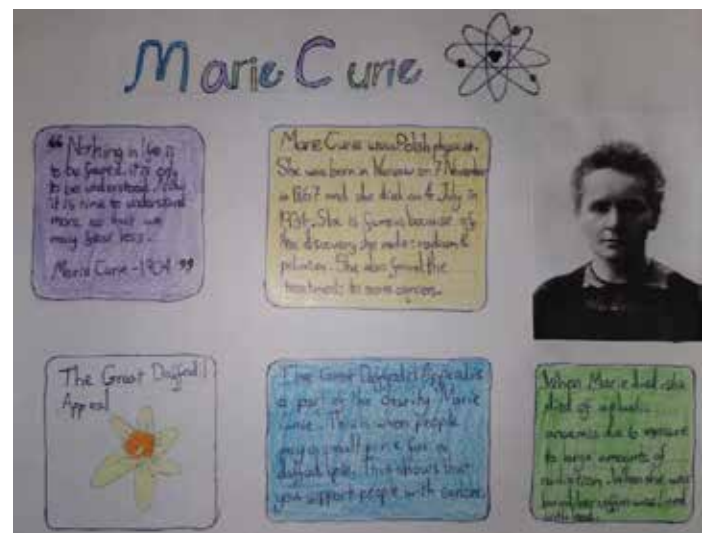 Marie Curie
“ Nothing in life is
to be feared, it is only
to be understood. Now
it is time to understand
more, so that we
may fear less.
Marie Curie - 1934 ”
Marie Curie was Polish physicist.
She was born in Warsaw on 7 November
in 1867 and she died on 4 July in
1934. She is famous because of
the discovery she made: radium &
polonium. She also found the
treatments to some cancers.
The Great Daffodil
Appeal
The Great Daffodil Appeal is
a part of the charity Marie
Curie. This is when people
pay a small price for a
daffodil This shows that
you support people with cancer.
When Marie died she
died of aplastic
anaemia due to exposure
to large amounts of
radiation. When she was
her coffin was lined
with lead.